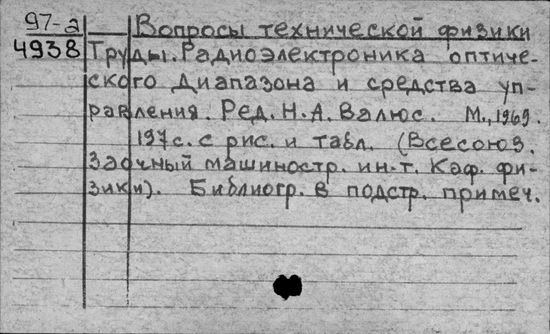 97-2
4938
Вопросы технической физики
Труды. Радиоэлектроника оптиче-
ского диапазона и средства уп-
равления. Ред. Н.А. Валюс. М., 1969.
197 с. с рис. и табл. (Всесоюз.
Заочный машиностр. ин-т. Каф. фи-
зики). Библиогр. в подстр. примеч.